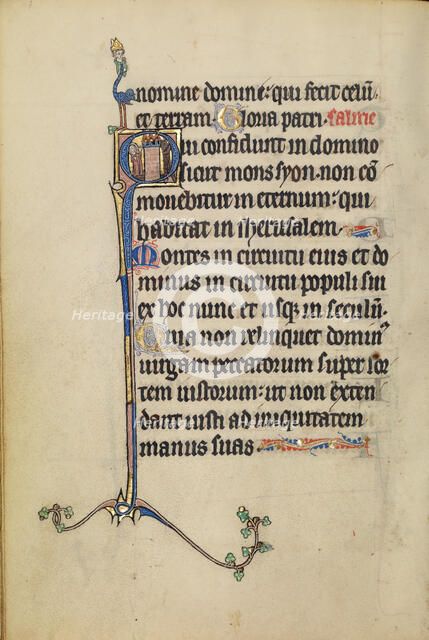 nomine domine: qui fecit celū.
et terram. Gloria patri. 
Qui confidunt in domino
sicut mons syon. non cō
mouebitur in eternum: qui
habitat in iherusalem.
Montes in circuitu eius et do
minus in circuitu populi sui
ex hoc nunc et usq; in seculū.
Quia non relinquet domin9
uirgam peccatorum super sor
tem iustorum: ut non exten
dant iusti ad iniquitatem
manus suas.
Heritage Heritage Heritage